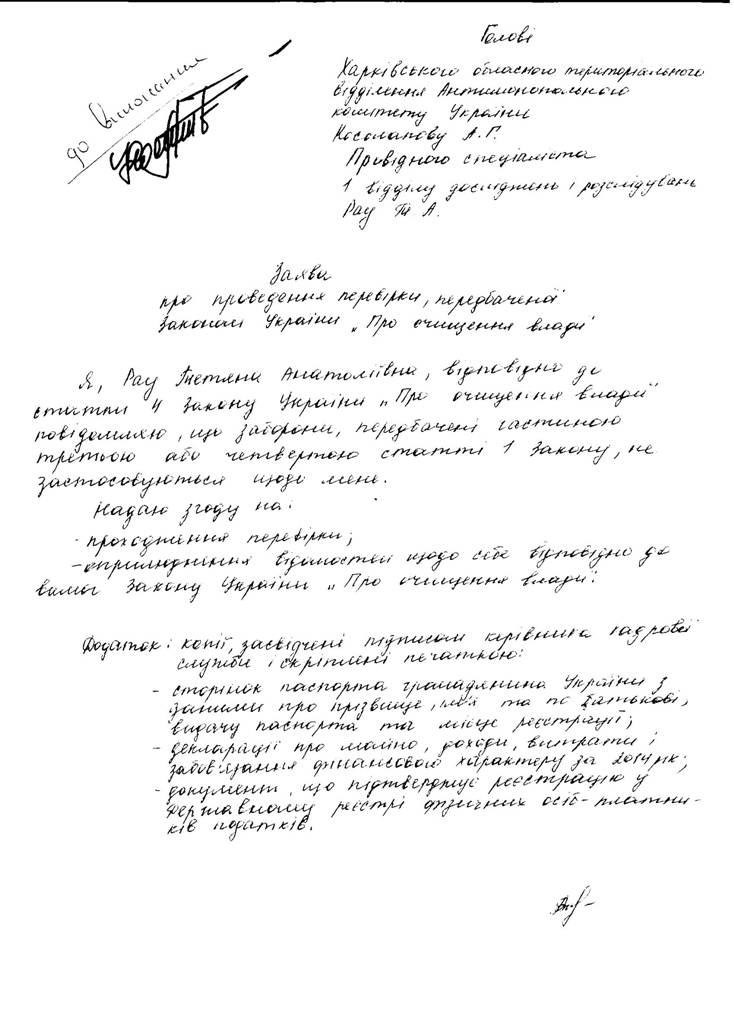 до виконання
Голові
Харківського обласного територіального
відділення Антимонопольного
комітету України
Косолапову А.Г.
Провідного спеціаліста
1 відділу досліджень і розслідувань
Рау Т. А.
Заява
про проведення перевірки, передбаченої
Законом України „Про очищення влади"
Я, Рау Тетяна Анатоліївна, відповідно до
статті 4 Закону України „Про очищення влади"
повідомляю, що заборони, передбачені частиною
третьою або четвертою статті 1 Закону, не
застосовуються щодо мене.
Надаю згоду на:
- проходження перевірки;
- оприлюднення відомостей щодо себе відповідно до
вимог Закону України „Про очищення влади".
Додаток: копії, засвідчені підписом керівника кадрової
служби і скріплені печаткою:
- сторінок паспорта громадянина України з
даними про прізвище, ім'я та по батькові,
видачу паспорта та місце реєстрації;
- декларації про майно, доходи, витрати і
зобов'язання фінансового характеру за 2014 рік;
- документи, що підтверджує реєстрацію у
Державному реєстрі фізичних осіб-платни-
ків податків.